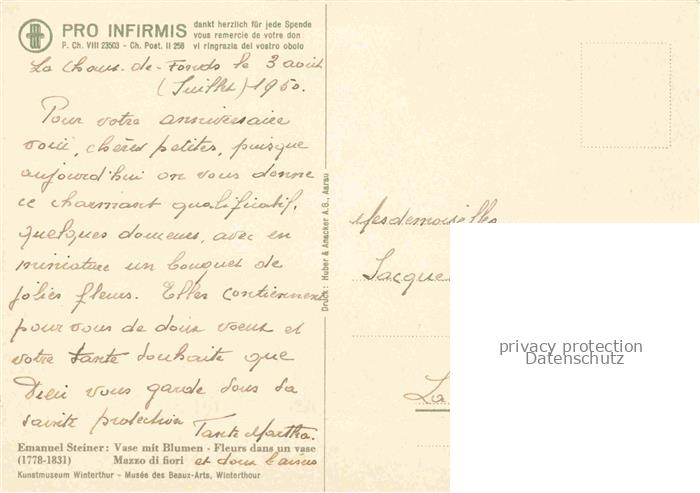 PRO INFIRMIS
dankt herzlich für jede Spende
vous remercie de votre don
P. Ch. VIII 23503 - Ch. Post. II 258 vi ringrazia del vostro obolo
La Chaux-de-Fonds le 3 août
(Juillet) 1950.
Pour votre anniversaire
voici, chères petites, puisque
aujourd'hui on vous donne
ce charmant qualificatif,
quelques douceurs, avec en
miniature un bouquet de
jolies fleurs. Elles contiennent
pour vous de doux voeux et
votre tante souhaite que
Dieu vous garde sous sa
sainte protection
Tante Martha.
et doux baisers
Emanuel Steiner: Vase mit Blumen - Fleurs dans un vase
(1778-1831) Mazzo di fiori
Kunstmuseum Winterthur - Musée des Beaux-Arts, Winterthour
Druck: Huber & Anacker A.G., Aarau
Mesdemoiselles
Jacque
La
privacy protection
Datenschutz